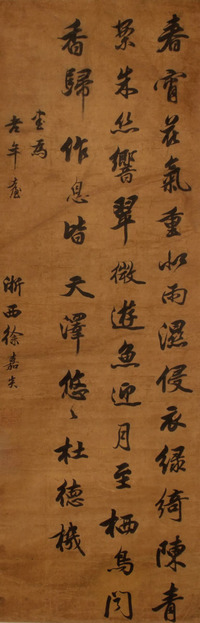 春宵花氣重如雨濕侵衣綠綺陳青
案朱絲響翠微遊魚迎月至栖鳥聞
香歸作息皆天澤悠悠杜德機
書為
老年臺 浙西徐嘉炎